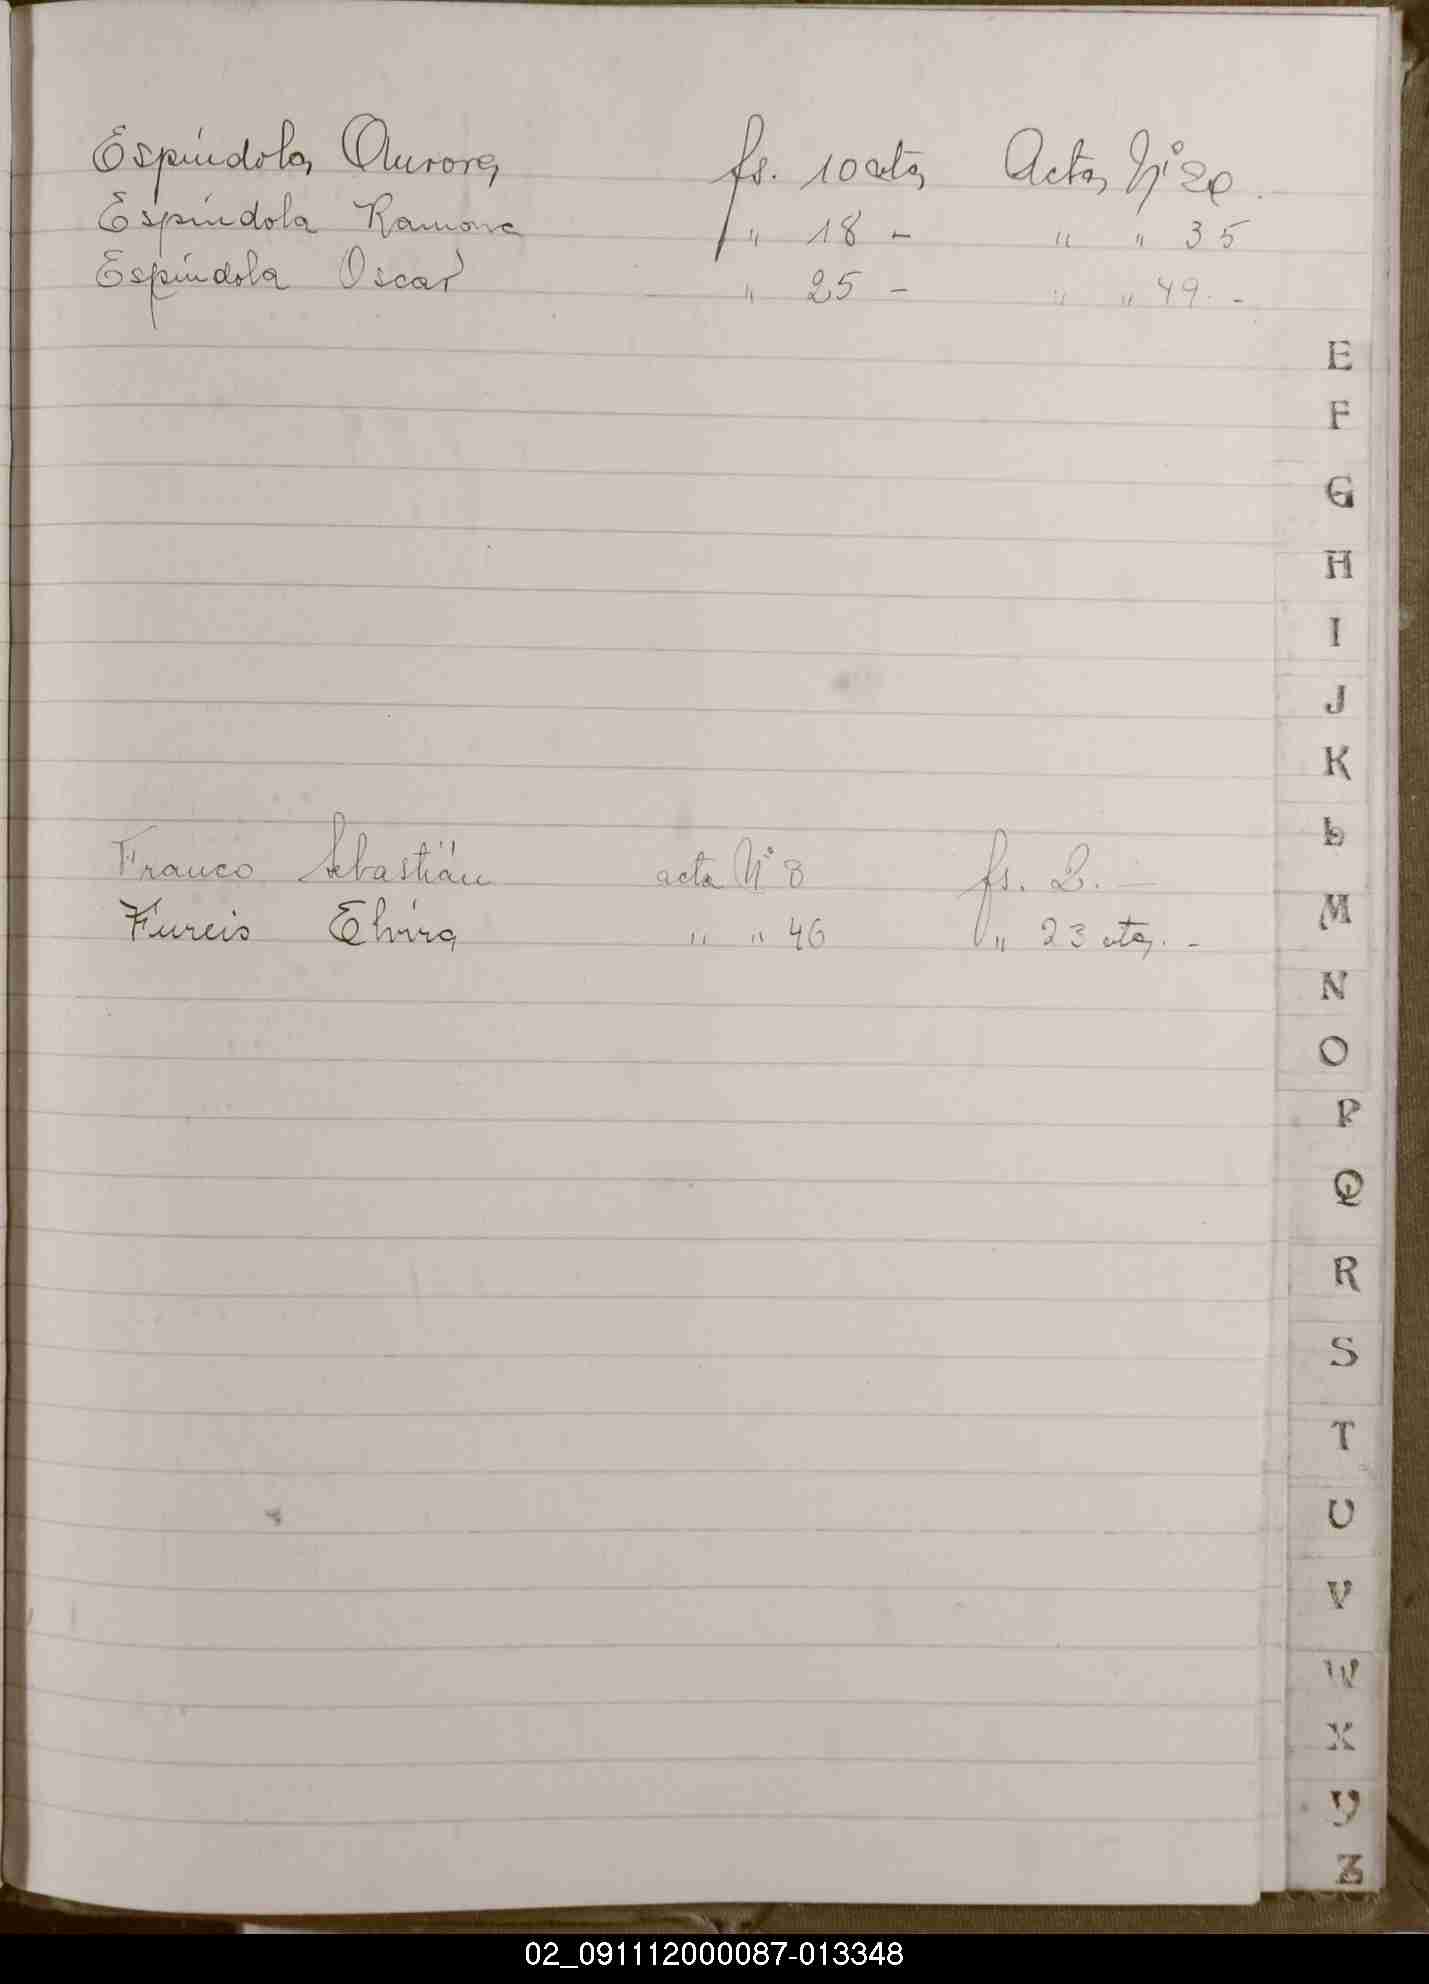 Espíndola Aurora fs. 10 vta Acta Nº 20.
Espíndola Ramona " 18 - " " 35
Espíndola Oscar " 25 - " " 49. -
E
F
G
H
I
J
K
Franco Sebastián acta Nº 3 fs. 2. -
L
Elvira " " 46 " 23 vta. -
M
N
O
P
Q
R
S
T
U
V
W
X
Y
Z
02_091112000087-013348